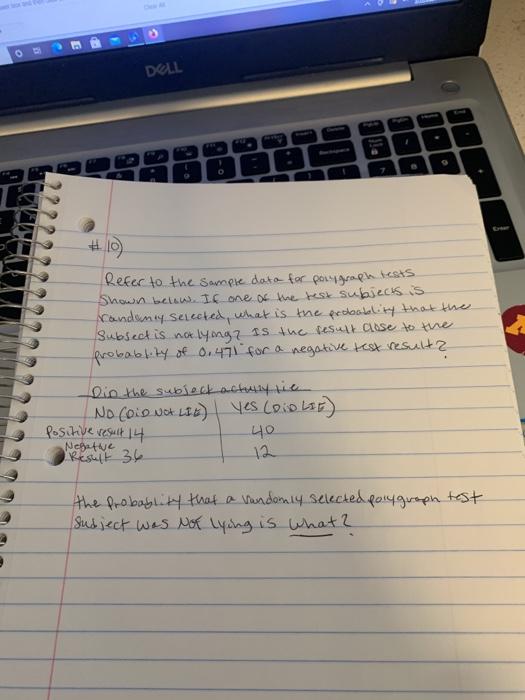 DELL
Backspace
Home
End
Enter
# 10)
Refer to the sample data for polygraph tests
Shown below. If one of the test subjects is
randomly selected, what is the probability that the
Subject is not lying? Is the result close to the
probability of 0.471 for a negative test result?
Did the subject actually lie
NO (DID NOT LIE) | Yes (DID LIE)
Positive result 14 40
Negative
Result 36 12
the Probability that a randomly selected polygraph test
Subject was Not lying is what?